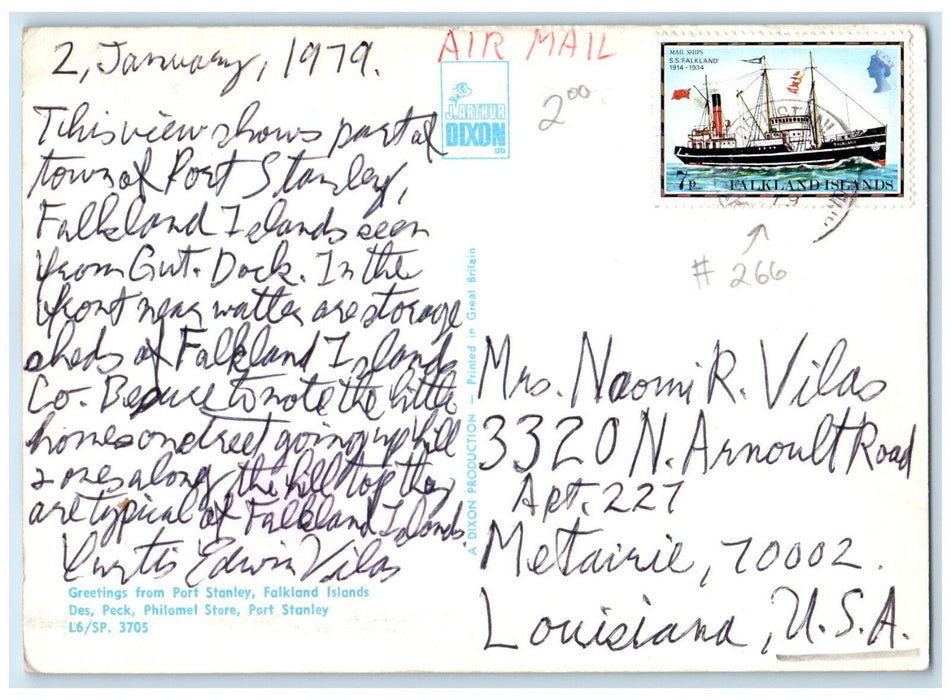 2, January, 1979.
This view shows part of
town of Port Stanley,
Falkland Islands seen
from Gvt. Dock. In the
front near watter are storage
sheds of Falkland Islands
Co. Besuce to note the little
homes on street going up hill
& ones along the hill top they
are typical of Falkland Islands.
Curtis Edwin Vilas
Greetings from Port Stanley, Falkland Islands
Des, Peck, Philomel Store, Port Stanley
L6/SP. 3705
A DIXON PRODUCTION — Printed in Great Britain
AIR MAIL
J. ARTHUR
DIXON
LTD
2⁰⁰
MAIL SHIPS
S.S 'FALKLAND'
1914-1934
FALKLAND
7p FALKLAND ISLANDS
79
# 266
Mrs. Naomi R. Vilas
3320 N. Arnoult Road
Apt. 227
Metairie, 70002.
Louisiana, U.S.A.